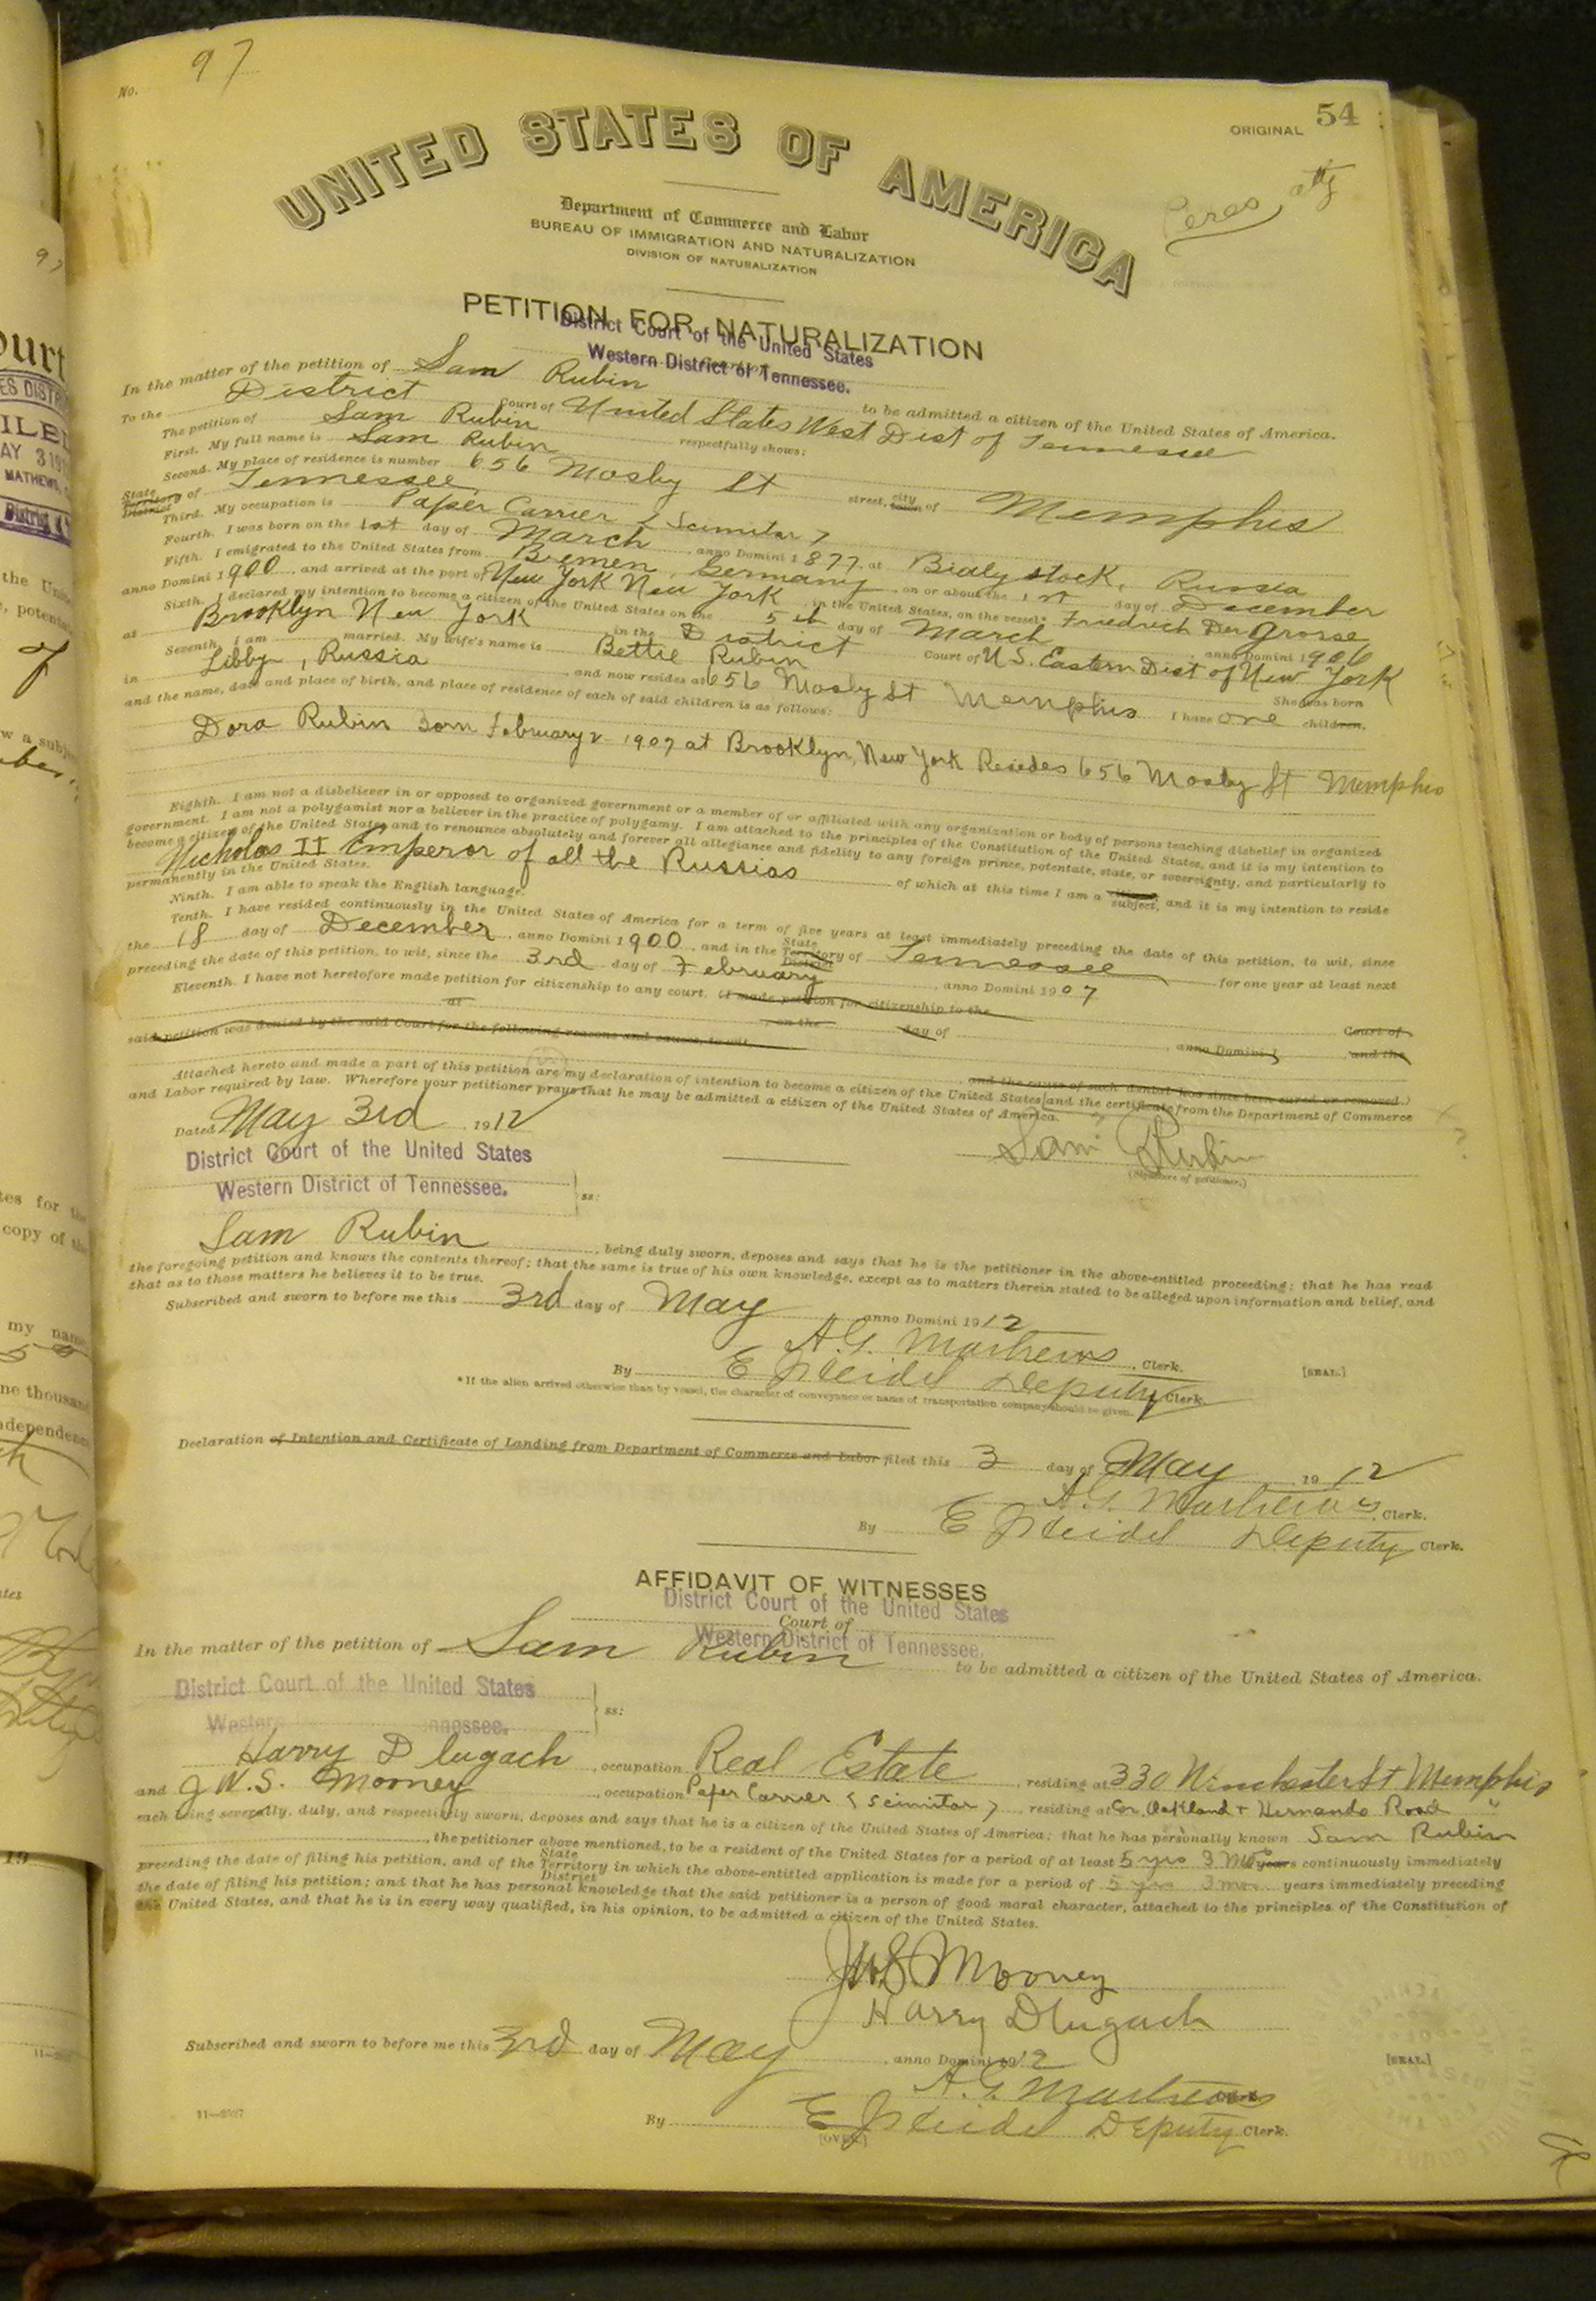 No. 97
ORIGINAL 54
Peres, atty
UNITED STATES OF AMERICA
Department of Commerce and Labor
BUREAU OF IMMIGRATION AND NATURALIZATION
DIVISION OF NATURALIZATION
PETITION FOR NATURALIZATION
District Court of the United States
Western District of Tennessee.
In the matter of the petition of Sam Rubin to be admitted a citizen of the United States of America.
To the District Court of United States West Dist of Tennessee
The petition of Sam Rubin respectfully shows:
First. My full name is Sam Rubin
Second. My place of residence is number 656 Mosby St street, city town of Memphis
State Territory District of Tennessee
Third. My occupation is Paper Carrier (Scimitar)
Fourth. I was born on the 1st day of March anno Domini 1877 at Bialystock, Russia
Fifth. I emigrated to the United States from Bremen, Germany, on or about the 1st day of December
anno Domini 1900, and arrived at the port of New York New York in the United States, on the vessel* Friedrich Der Grosse
Sixth. I declared my intention to become a citizen of the United States on the 5th day of March anno Domini 1906
at Brooklyn New York in the District Court of U.S. Eastern Dist of New York
Seventh. I am married. My wife's name is Bettie Rubin She was born
in Libby, Russia, and now resides at 656 Mosby St Memphis I have one children,
and the name, date and place of birth, and place of residence of each of said children is as follows:
Dora Rubin Born February 2 1907 at Brooklyn, New York Resides 656 Mosby St Memphis
Eighth. I am not a disbeliever in or opposed to organized government or a member of or affiliated with any organization or body of persons teaching disbelief in organized
government. I am not a polygamist nor a believer in the practice of polygamy. I am attached to the principles of the Constitution of the United States, and it is my intention to
become a citizen of the United States and to renounce absolutely and forever all allegiance and fidelity to any foreign prince, potentate, state, or sovereignty, and particularly to
Nicholas II Emperor of all the Russias of which at this time I am a citizen subject, and it is my intention to reside
permanently in the United States.
Ninth. I am able to speak the English language.
Tenth. I have resided continuously in the United States of America for a term of five years at least immediately preceding the date of this petition, to wit, since
the 18 day of December, anno Domini 1900, and in the State Territory District of Tennessee for one year at least next
preceding the date of this petition, to wit, since the 3rd day of February, anno Domini 1907
Eleventh. I have not heretofore made petition for citizenship to any court. (I made petition for citizenship to the Court of
at on the day of anno Domini 1 and the
said petition was denied by the said Court for the following reasons and causes, to wit,
and the cause of such denial has since been cured or removed.)
Attached hereto and made a part of this petition are my declaration of intention to become a citizen of the United States and the certificate from the Department of Commerce
and Labor required by law. Wherefore your petitioner prays that he may be admitted a citizen of the United States of America.
Dated May 3rd, 1912
Sam Rubin
(Signature of petitioner.)
District Court of the United States
Western District of Tennessee.
ss:
Sam Rubin, being duly sworn, deposes and says that he is the petitioner in the above-entitled proceeding; that he has read
the foregoing petition and knows the contents thereof; that the same is true of his own knowledge, except as to matters therein stated to be alleged upon information and belief, and
that as to those matters he believes it to be true.
Subscribed and sworn to before me this 3rd day of May anno Domini 1912
A.G. Mathews, Clerk.
[SEAL.]
By Deputy Clerk.
*If the alien arrived otherwise than by vessel, the character of conveyance or name of transportation company should be given.
Declaration of Intention and Certificate of Landing from Department of Commerce and Labor filed this 3 day of May, 1912
A.G. Mathews, Clerk.
By Deputy Clerk.
AFFIDAVIT OF WITNESSES
District Court of the United States
Court of
Western District of Tennessee.
In the matter of the petition of Sam Rubin to be admitted a citizen of the United States of America.
District Court of the United States
Western nnessee.
ss:
Harry Dlugach, occupation Real Estate, residing at 330 Winchester St Memphis
and J W.S. Mooney, occupation Paper Carrier (Scimitar), residing at Cor. Oakland + Hernando Road "
each being severally, duly, and respectively sworn, deposes and says that he is a citizen of the United States of America; that he has personally known Sam Rubin
, the petitioner above mentioned, to be a resident of the United States for a period of at least 5 yrs 3 Mos years continuously immediately
preceding the date of filing his petition, and of the State Territory District in which the above-entitled application is made for a period of 5 yrs 3 mos years immediately preceding
the date of filing his petition; and that he has personal knowledge that the said petitioner is a person of good moral character, attached to the principles of the Constitution of
the United States, and that he is in every way qualified, in his opinion, to be admitted a citizen of the United States.
JWS Mooney
Harry Dlugach
Subscribed and sworn to before me this 3rd day of May, anno Domini 1912
A.G. Mathews
[SEAL.]
By Deputy Clerk.
11—2527
[OVER.]